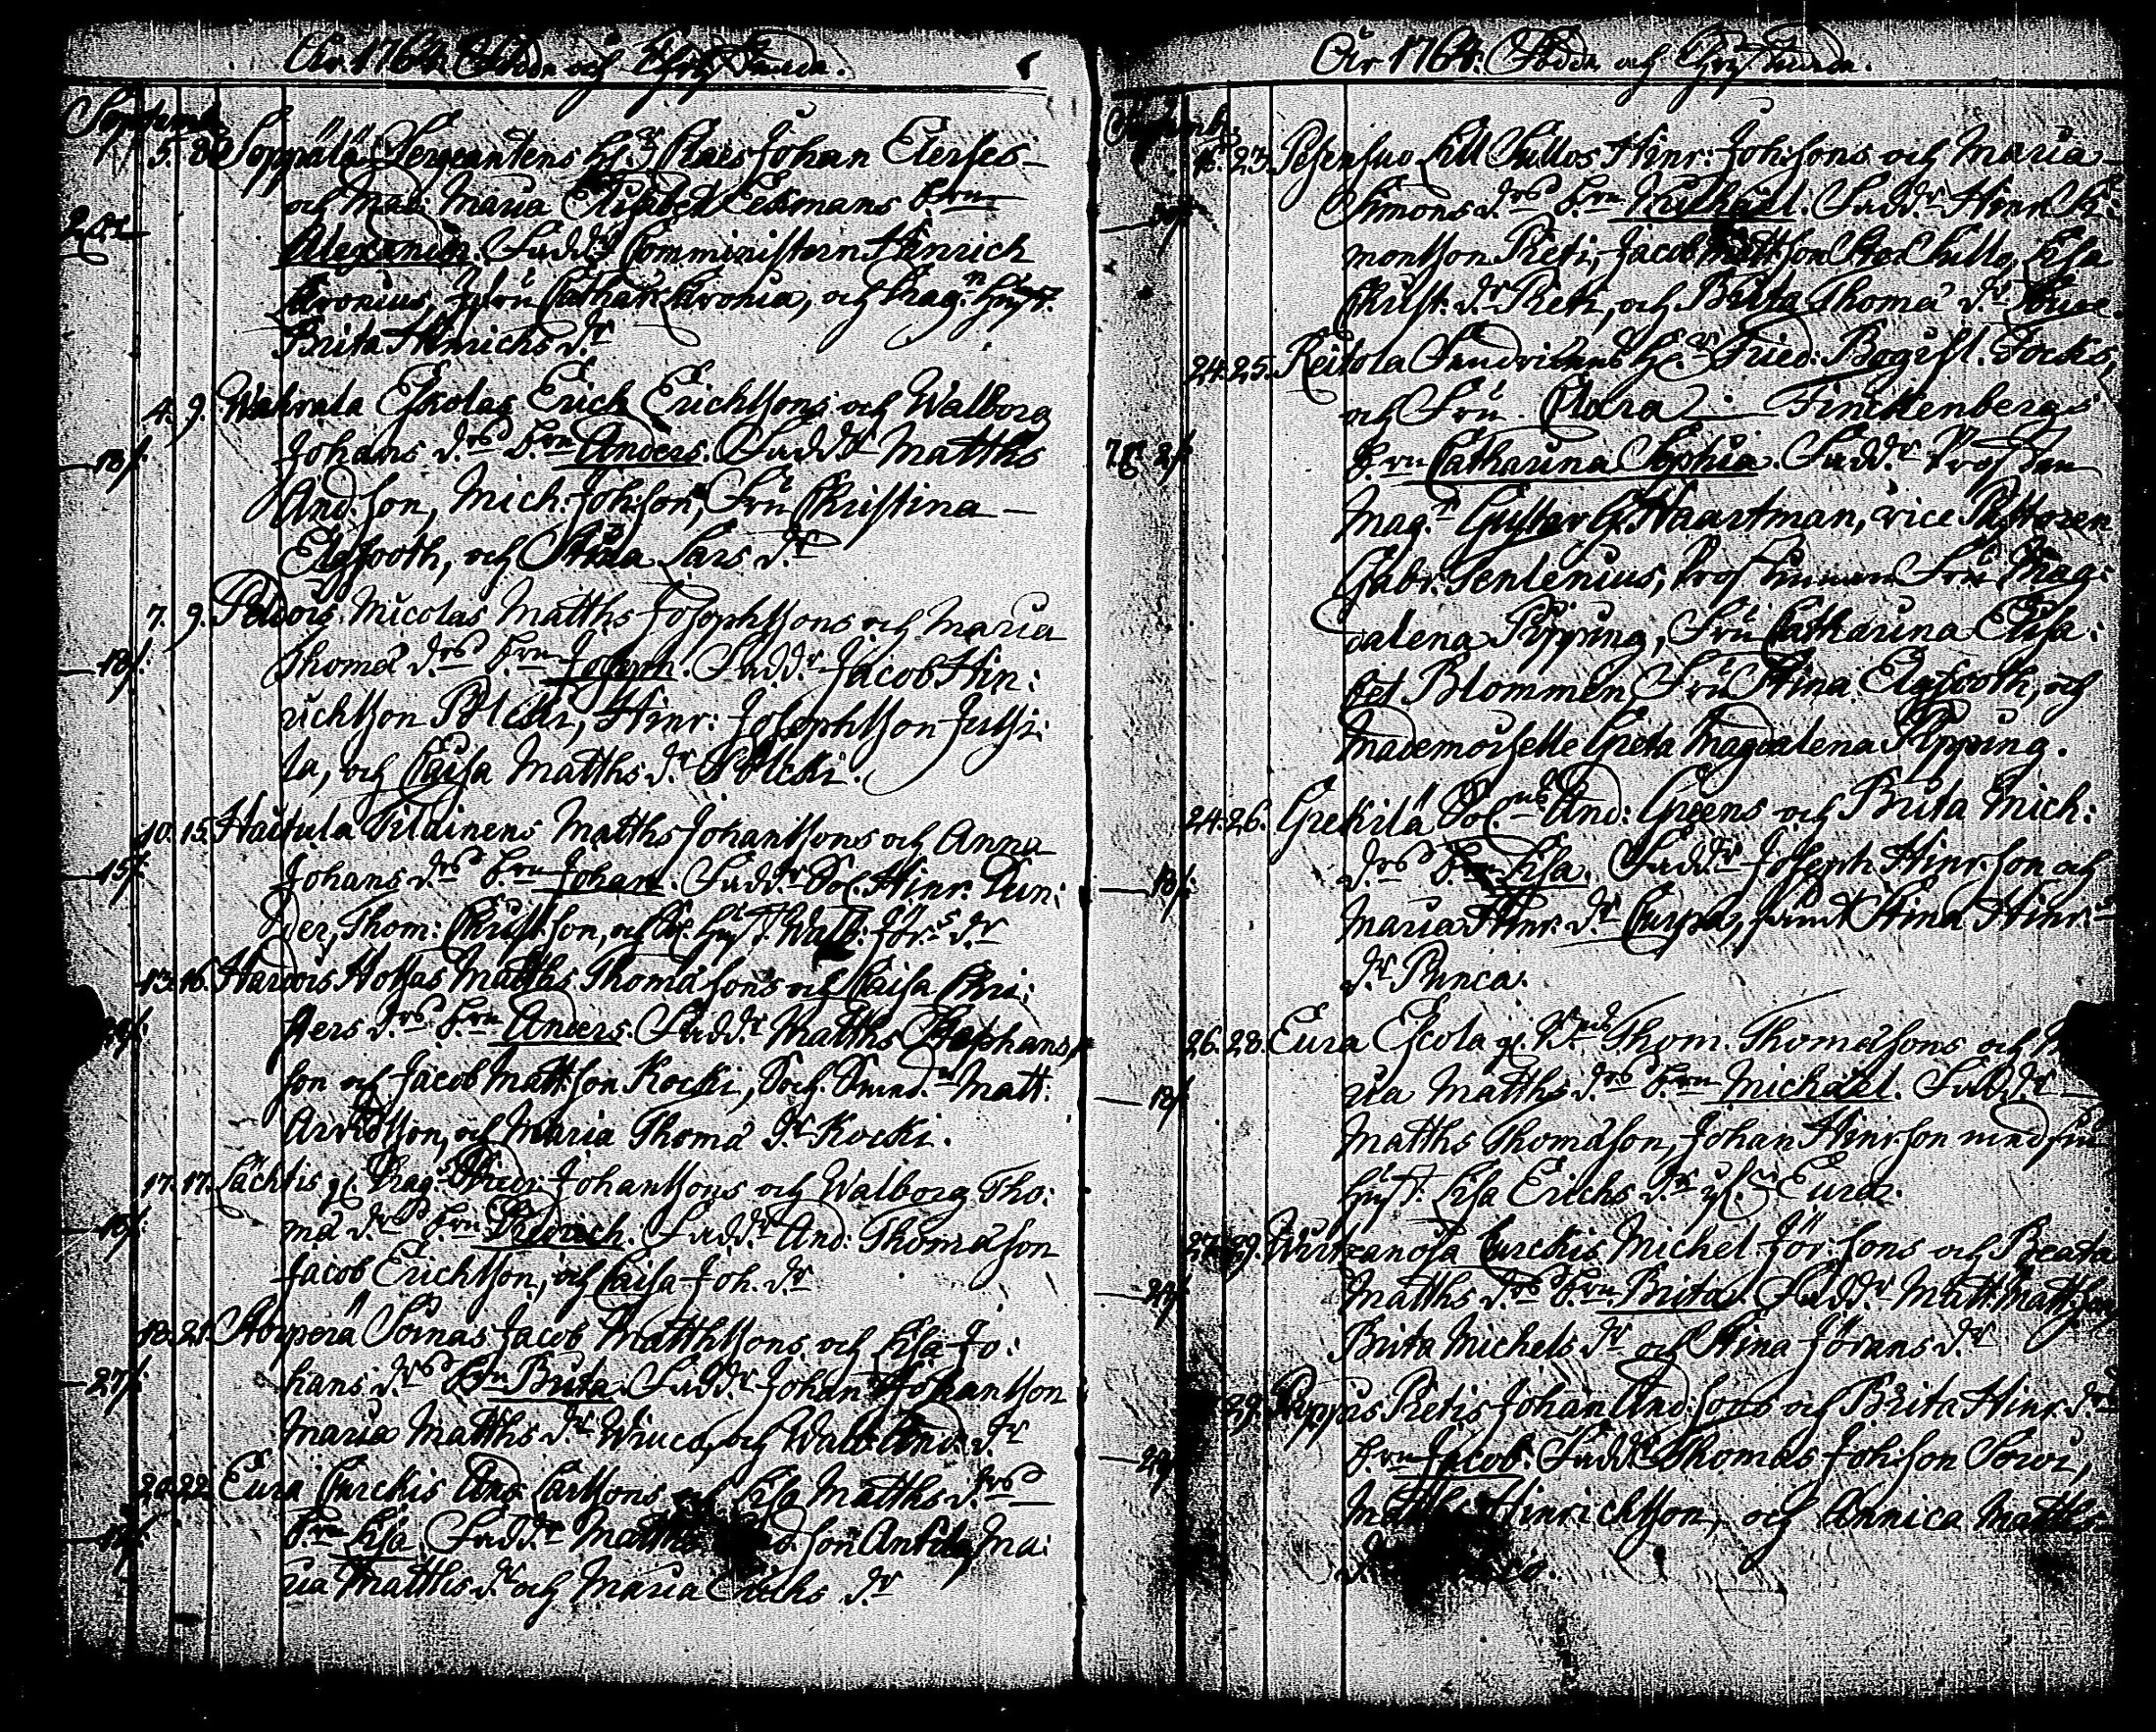 Åhr 1764. Födde och Christnade.
Septemb.
5. 8. Soppala Sergeantens Hr. Claes Johan Elerses
och Mad: Maria Elisabet Eekmans brn
2 rt
Alexander. Fadd.r Comministern Hinrich
Kronius, Fru Cathar: Kronia, och Drag.n hust.
Brita Hinrichs d.r
4. 9. Wahrala Eskolas Erich Erichssons och Walborg
18/. Johans d.rs b.rn Anders. Fadd.r Matths
And.son, Mich. Joh.son, Fru Christina
Elgfooth, och Stina Lars d.r
7. 9. Peldois Nicolas Matths Josephssons och Maria
18/. Thomæ d.rs b.rn Joseph. Fadd.r Jacob Hin:
richsson Pölcki, Hinr: Josephsson Jussi:
la, och Caisa Matths d.r Pölcki.
10. 15. Hautula Tilainens Matths Johanssons och Anna
15/. Johans d.rs b.rn Johan. Fadd.r Sol. Hinr. Dun:
der, Thom: Christ.son, och Sol. hust. Walb: Jör.s d.r
13. 16. Harvois Hossas Matths Thomæsons och Caisa Chri:
24/. sters d.rs b.rn Anders. Fadd.r Matths Staphans
son och Jacob Matt.son Kocki, Soch. Smed.n Matt.
Arvidsson, och Maria Thomæ d.r Kocki.
17. 17. Lachtis gl. Drag.s Fredr. Johanssons och Walborg Tho:
18/. mæ d.rs b.rn Fredrich. Fadd.r And: Thomæson
Jacob Erichsson, och Caisa Joh. d.r
18. 21. Storperä Sornas Jacob Matthssons och Lisa Jo:
27/. hans d.rs b.rn Brita. Fadd.r Johan Johansson
Maria Matths d.r Wiuca, och Walb. And. d.r
20. 22. Eura Curckis And. Carlssons och Lisa Matths d.rs
17/. b.rn Lisa. Fadd.r Matths And.son Antila, Ma:
ria Matths d.r och Maria Erichs d.r
Åhr 1764. Födde och Christnade.
Septemb.
23. Pesensuo Lill Sullos Hinr: Joh.sons och Maria
Simons d.rs b.rn Michael. Fadd.r Hinr Si:
monsson Pieti, Jacob Matt.son Stor Sullo, Lisa
Christ. d.r Pieti, och Brita Thomæ d.r
24. 25. Reitola Landricens Hr. Fried: Bogisl. Focks
och Fru Clara Finckenbergs
7br 2/. b.rn Catharina Sophia. Fadd.r Prosten
Mag.r Gustav G. Haartman, vice Pastoren
Gabr. Tenlenius, Prostinnan Fru Mag:
dalena Pipping, Fru Catharina Elisa:
bet Blommen, Fru Stina Elgfooth, och
Mademoiselle Greta Magdalena Pipping.
24. 26. Grekilä Sol.ns And: Greens och Brita Mich:
18/. d.rs b.rn Lisa. Fadd.r Joseph Hinr.son och
Maria Hinr. d.r Curppa, samt Stina Hinr.s
d.r Punca.
26. 28. Eura Escola gl. Thom. Thomæsons och Ma
18/. ria Matths d.rs b.rn Michael. Fadd.r
Matths Thomæson, Johan Hinr.son med sin
hust. Lisa Erichs d.r
27. 29. Wirtzanoja Curckis Michel Jör.sons och Beata
24/. Matths d.rs b.rn Brita. Fadd.r Matt. Matt.son
Brita Michels d.r och Stina Jörans d.r
29. Pietis Johan And.sons och Brita Hinr. d.rs
24/. b.rn Jacob. Fadd.r Thomas Joh.son Sorvi,
Matths Hinrichsson, och Annica Matths
d.r